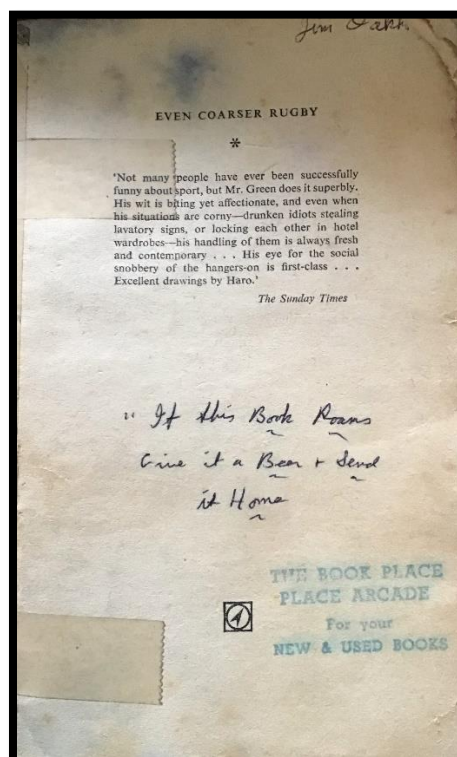 Jim
EVEN COARSER RUGBY
*
'Not many people have ever been successfully
funny about sport, but Mr. Green does it superbly.
His wit is biting yet affectionate, and even when
his situations are corny—drunken idiots stealing
lavatory signs, or locking each other in hotel
wardrobes—his handling of them is always fresh
and contemporary . . . His eye for the social
snobbery of the hangers-on is first-class . . .
Excellent drawings by Haro.'
The Sunday Times
" If this Book Roams
Give it a Beer + Send
it Home
THE BOOK PLACE
PLACE ARCADE
For your
NEW & USED BOOKS